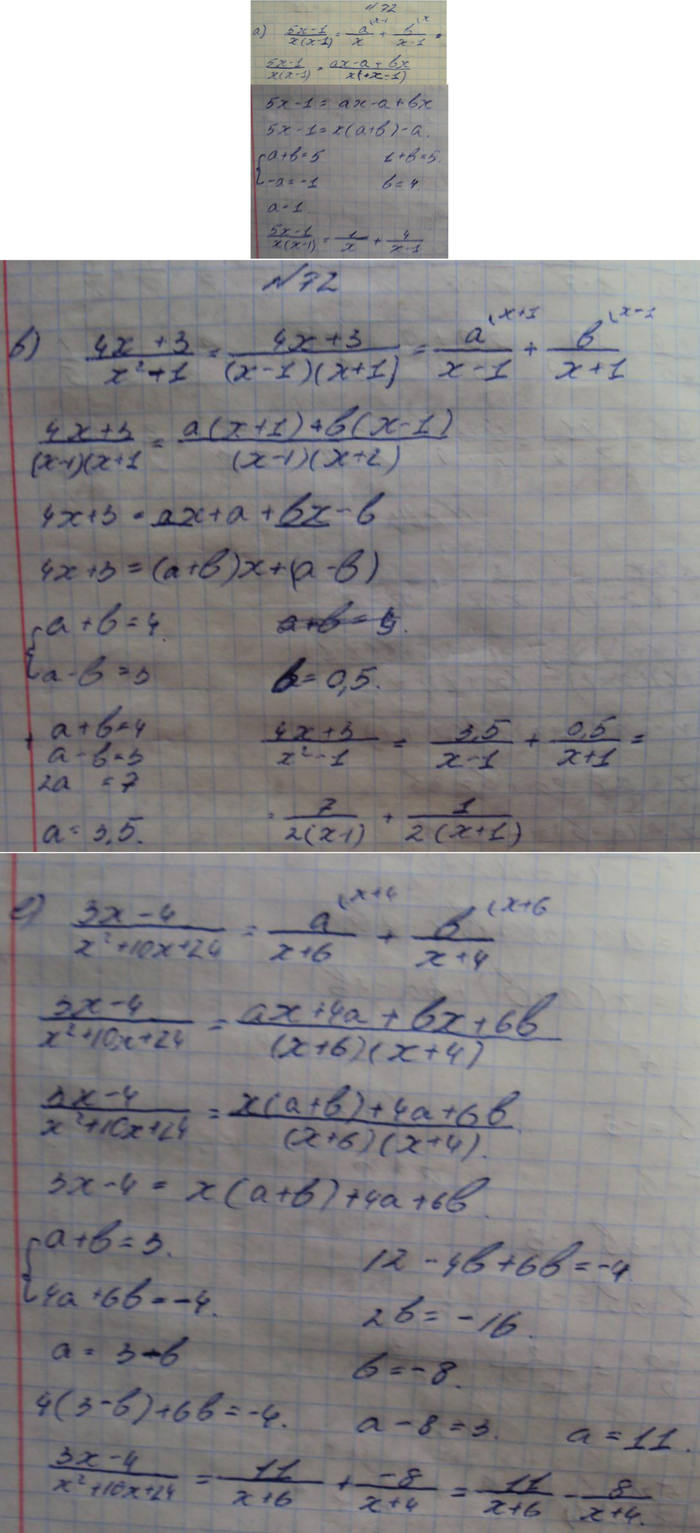 №72
а) (5x-1)/(x(x-1)) = a^(x-1)/x + b^(x/(x-1) =
(5x-1)/(x(x-1)) = (ax-a+bx)/(x(x-1)
5x-1 = ax-a+bx
5x-1 = x(a+b)-a.
{a+b=5 1+b=5.
-a=-1 b=4
a-1
(5x-1)/(x(x-1) = 1/x + 4/(x-1)
№72
в) (4x+3)/(x²+1) = (4x+3)/((x-1)(x+1)) = a^(x+1/(x-1) + b^(x-1/(x+1)
(4x+3)/((x-1)(x+1) = (a(x+1)+b(x-1))/((x-1)(x+2))
4x+3 = ax+a+bx-b
4x+3 = (a+b)x+(a-b)
{a+b=4. a+b=4.
a-b=3 b=0,5.
+ a+b=4
a-b=3
2a =7
a=3,5.
(4x+3)/(x²-1) = 3,5/(x-1) + 0,5/(x+1) =
= 7/(2(x-1) + 1/(2(x+1))
е) (3x-4)/(x²+10x+24) = a^(x+4/(x+6) + b^(x+6/(x+4)
(3x-4)/(x²+10x+24) = (ax+4a+bx+6b)/((x+6)(x+4))
(3x-4)/(x²+10x+24) = (x(a+b)+4a+6b)/((x+6)(x+4).
3x-4 = x(a+b)+4a+6b.
{a+b=3. 12-4b+6b=-4
4a+6b=-4. 2b=-16.
a=3-b b=-8.
4(3-b)+6b=-4. a-8=3. a=11.
(3x-4)/(x²+10x+24) = 11/(x+6) + -8/(x+4) = 11/(x+6) - 8/(x+4).